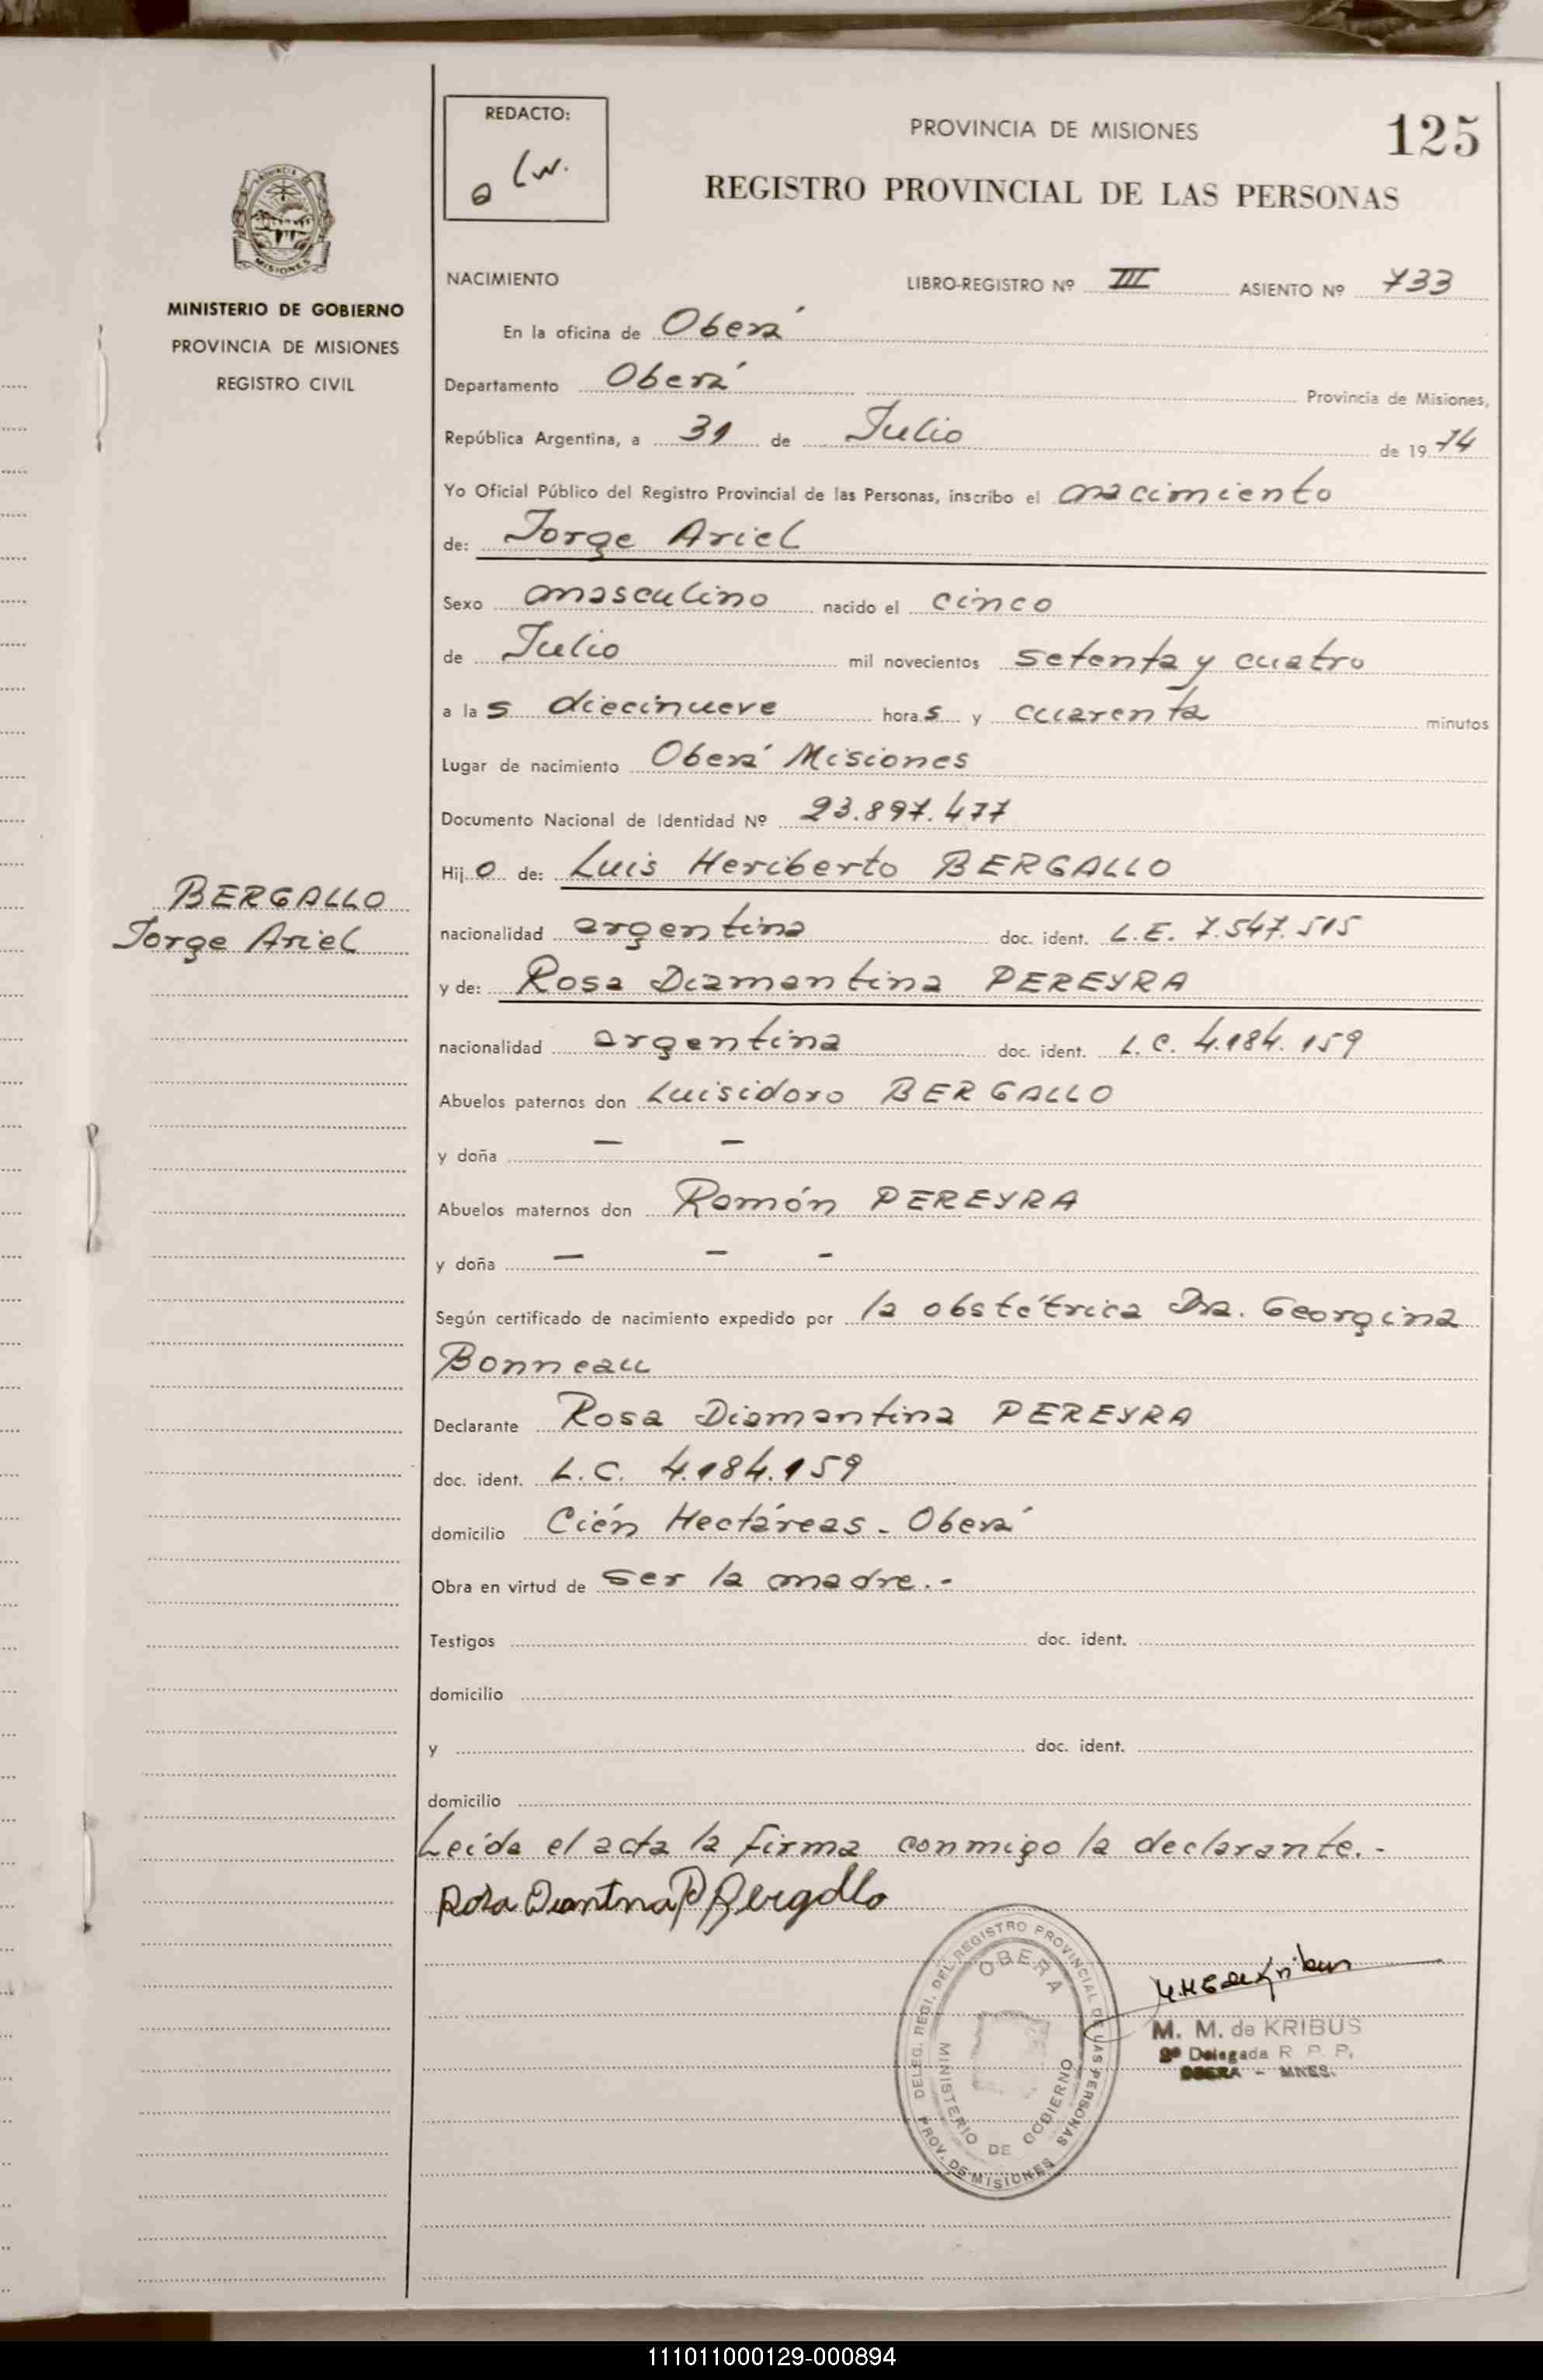 REDACTO:
PROVINCIA DE MISIONES
125
REGISTRO PROVINCIAL DE LAS PERSONAS
MISIONES
MINISTERIO DE GOBIERNO
PROVINCIA DE MISIONES
REGISTRO CIVIL
NACIMIENTO LIBRO-REGISTRO Nº III ASIENTO Nº 733
En la oficina de Oberá
Departamento Oberá Provincia de Misiones,
República Argentina, a 31 de Julio de 1974
Yo Oficial Público del Registro Provincial de las Personas, inscribo el nacimiento
de: Jorge Ariel
Sexo masculino nacido el cinco
de Julio mil novecientos setenta y cuatro
a las diecinueve horas y cuarenta minutos
Lugar de nacimiento Oberá Misiones
Documento Nacional de Identidad Nº 23.897.477
Hijo de: Luis Heriberto BERGALLO
BERGALLO
Jorge Ariel
nacionalidad argentina doc. ident. L.E. 7.547.515
y de: Rosa Diamantina PEREYRA
nacionalidad argentina doc. ident. L.C. 4.184.159
Abuelos paternos don Luisidoro BERGALLO
y doña — —
Abuelos maternos don Ramón PEREYRA
y doña — — -
Según certificado de nacimiento expedido por la obstétrica Dra. Georgina
Bonneau
Declarante Rosa Diamantina PEREYRA
doc. ident. L.C. 4.184.159
domicilio Cién Hectáreas - Oberá
Obra en virtud de ser la madre.-
Testigos doc. ident.
domicilio
y doc. ident.
domicilio
Leída el acta la firma conmigo la declarante.-
Rosa Diantina P Bergallo
DELEG. REGI. DEL REGISTRO PROVINCIAL DE LAS PERSONAS
OBERA
MINISTERIO DE GOBIERNO
PROV. DE MISIONES
M. M. de KRIBUS
2º Delegada R. P. P.
OBERA - MNES.
111011000129-000894